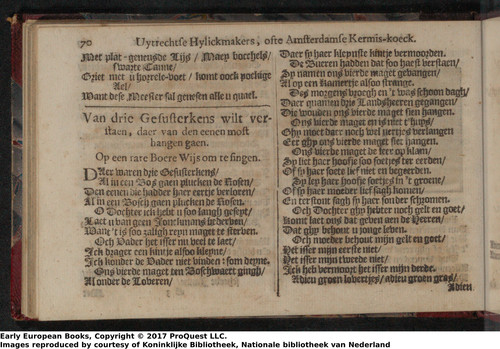 70 Uytrechtse Hylickmakers, ofte Amsterdamse Kermis-koeck.
Met plat-geneusde Lijs / Maey borchels/
swarte Tanne/
Griet met u horrele-voet / komt oock pockige
Ael/
Want dese Meester sal genesen alle u quael.
Van drie Gesusterkens wilt ver-
staen, daer van den eenen most
hangen gaen.
Op een rare Boere Wijs om te singen.
Daer waren drie Gesusterkens/
Al in een Bosch gaen plucken de Rosen/
Den eenen die hadder haer eertje verloren/
Al in een Bosch gaen plucken de Rosen.
O Dochter ick hebt u soo langh gesept/
Laet u van geen Jonckmans bederven/
Want 't is soo saligh repn maget te sterven.
Och Vader het isser nu veel te laet/
Ick drager een kintje alsoo kleyne/
Ick konder de Vader niet vinden
Ons vierde maget ten Boschwaert gingh/
Al onder de Loveren/
Daer sy haer kleynste kintje vermoorden.
De Bueren hadden dat soo haest verstaen/
Sy namen ons vierde maget gevangen/
Al op een Kamertje alsoo strange.
Des morgens vroegh en 't was schoon dagh/
Daer quamen drie Landsheeren gegangen/
Die wouden ons vierde maget sien hangen.
Ons vierde maget en is niet t'huys/
Ghy moet daer noch wel uertjes verlangen
Eer ghy ons vierde maget siet hangen.
Ons vierde maget de leer op klam/
Sy liet haer hoofje soo soetjes ter eerden/
Of sy haer soete lief niet en begeerden.
Sy liep haer hoofje soetjes in 't groene/
Of sy haer moeder lief sagh komen/
En ter stont sagh sy haer sonder schromen.
Och Dochter ghy hebter noch gelt en goet/
Komt laet ons dat geven aen de Heeren/
Dat ghy behout u jonge leven.
Och moeder behout mijn gelt en goet/
Het isser mijn eerste niet/
Het isser mijn tweede niet/
Ick heb vermoort het isser mijn derde.
Adieu groen lovertjes/ adieu groen gras/
Adieu
Early European Books, Copyright © 2017 ProQuest LLC.
Images reproduced by courtesy of Koninklijke Bibliotheek, Nationale bibliotheek van Nederland